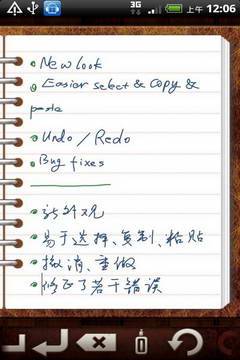 3G
上午 12:06
New look
Easier select & copy &
paste
Undo / Redo
Bug fixes
新外观
易于选择、复制、粘贴
撤消、重做
修正了若干错误